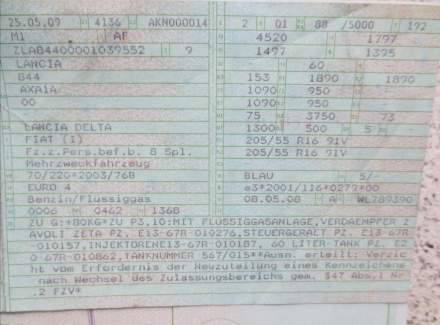 25.05.09 4136 AKN000014 2 01 88 /5000 192
M1 AF 4520 1797
ZLA84400001039552 9 1497 1395
LANCIA 60
844 153 1890 1890
AXA1A 1090 950 -
00 1090 950 -
75 3750 73
LANCIA DELTA 1300 500 5 -
FIAT (I) 205/55 R16 91V
Fz.z.Pers.bef.b. 8 Spl. 205/55 R16 91V
Mehrzweckfahrzeug
70/220*2003/76B BLAU 5/-
EURO 4 e3*2001/116*0279*00
Benzin/Flüssiggas 08.05.08 A WL789390
0006 0462 1368
ZU G:+80KG*ZU P3,10:MIT FLUSSIGGASANLAGE,VERDAEMPFER Z
AVOLI ZETA PZ. E13-67R-010276,STEUERGERAET PZ. E13-67R
-010157,INJEKTORENE13-67R-010187, 60 LITER-TANK PZ. E2
0-67R-010862,TANKNUMMER 567/015**Ausn. erteilt: Verzic
ht vom Erfordernis der Neuzuteilung eines Kennzeichens
nach Wechsel des Zulassungsbereichs gem. §47 Abs.1 Nr
.2 FZV*